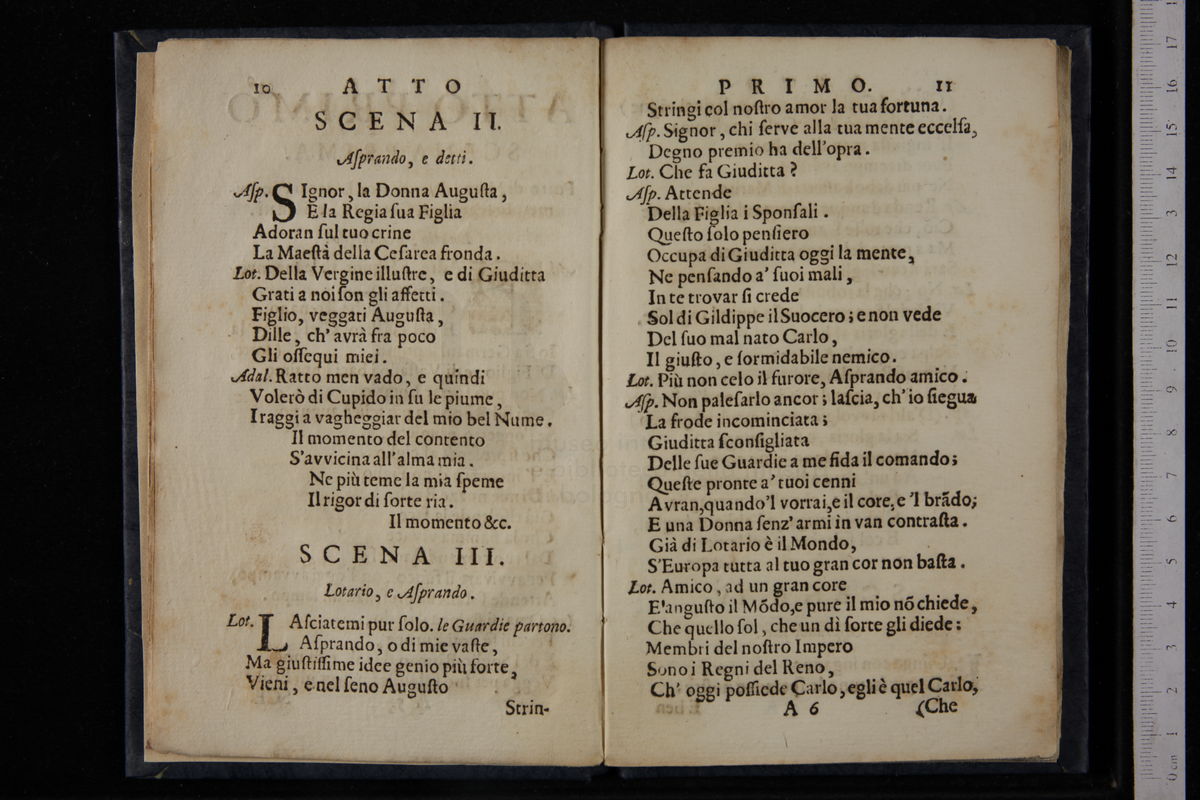 10 ATTO
SCENA II.
Aſprando, e detti.
Aſp. SIgnor, la Donna Auguſta,
E la Regia ſua Figlia
Adoran ſul tuo crine
La Maeſtà della Ceſarea fronda.
Lot. Della Vergine illuſtre, e di Giuditta
Grati a noi ſon gli affetti.
Figlio, veggati Auguſta,
Dille, ch' avrà fra poco
Gli oſſequi miei.
Adal. Ratto men vado, e quindi
Volerò di Cupido in ſu le piume,
I raggi a vagheggiar del mio bel Nume.
Il momento del contento
S'avvicina all'alma mia.
Ne più teme la mia ſpeme
Il rigor di ſorte ria.
Il momento &c.
SCENA III.
Lotario, e Aſprando.
Lot. LAſciatemi pur ſolo. le Guardie partono.
Aſprando, o di mie vaſte,
Ma giuſtiſſime idee genio più forte,
Vieni, e nel ſeno Auguſto
Strin-
PRIMO. 11
Stringi col noſtro amor la tua fortuna.
Aſp. Signor, chi ſerve alla tua mente eccelſa,
Degno premio ha dell'opra.
Lot. Che fa Giuditta?
Aſp. Attende
Della Figlia i Sponſali.
Queſto ſolo penſiero
Occupa di Giuditta oggi la mente,
Ne penſando a' ſuoi mali,
In te trovar ſi crede
Sol di Gildippe il Suocero; e non vede
Del ſuo mal nato Carlo,
Il giuſto, e formidabile nemico.
Lot. Più non celo il furore, Aſprando amico.
Aſp. Non paleſarlo ancor; laſcia, ch' io ſiegua
La frode incominciata;
Giuditta ſconſigliata
Delle ſue Guardie a me fida il comando;
Queſte pronte a' tuoi cenni
Avran, quando'l vorrai, e il core, e 'l brādo;
E una Donna ſenz' armi in van contraſta.
Già di Lotario è il Mondo,
S'Europa tutta al tuo gran cor non baſta.
Lot. Amico, ad un gran core
E'anguſto il Mōdo, e pure il mio nō chiede,
Che quello ſol, che un dì ſorte gli diede:
Membri del noſtro Impero
Sono i Regni del Reno,
Ch' oggi poſſiede Carlo, egli è quel Carlo,
A 6 (Che